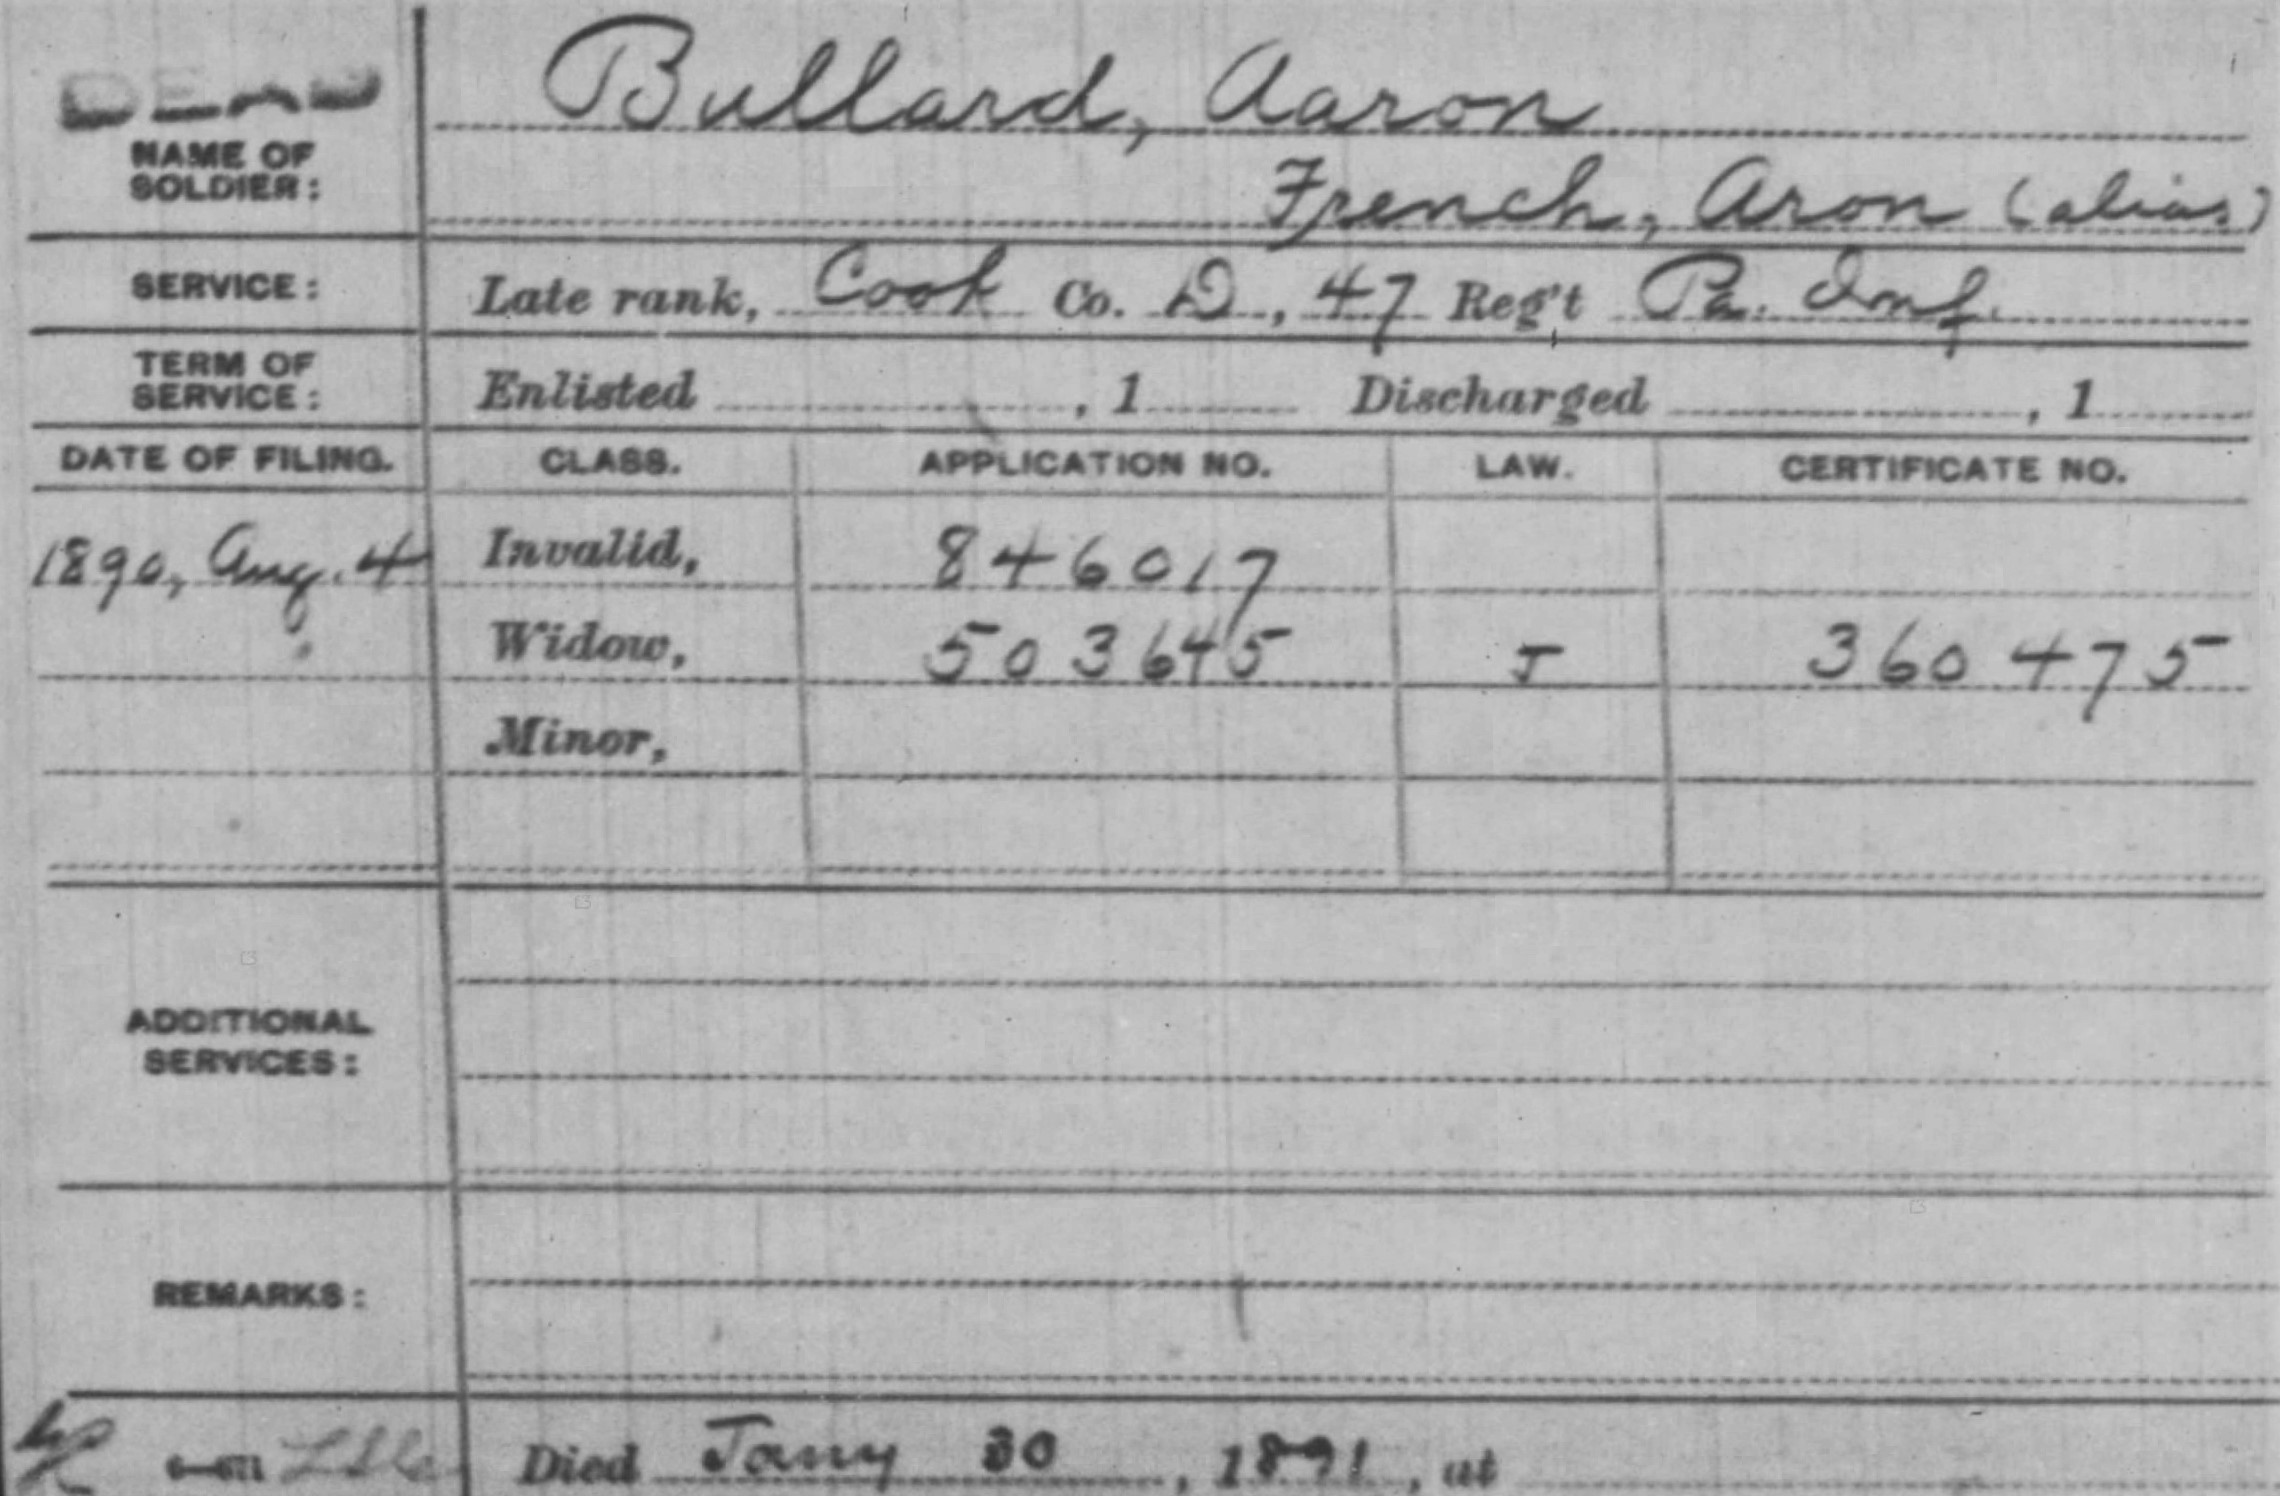 DEAD
NAME OF SOLDIER:
Bullard, Aaron
French, Aron (alias)
SERVICE: Late rank, Cook Co. D, 47 Reg't Pa. Inf.
TERM OF SERVICE: Enlisted , 1 Discharged , 1
DATE OF FILING. CLASS. APPLICATION NO. LAW. CERTIFICATE NO.
1890, Aug. 4 Invalid, 846017
Widow, 503645 J 360475
Minor,
ADDITIONAL SERVICES:
REMARKS:
Died Jany 30, 1891, at